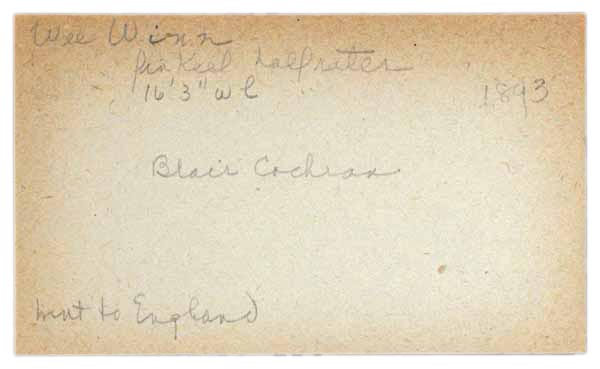 Wee Winn
fin Keel halfrater
16'3" w l 1893
Blair Cochran
went to England